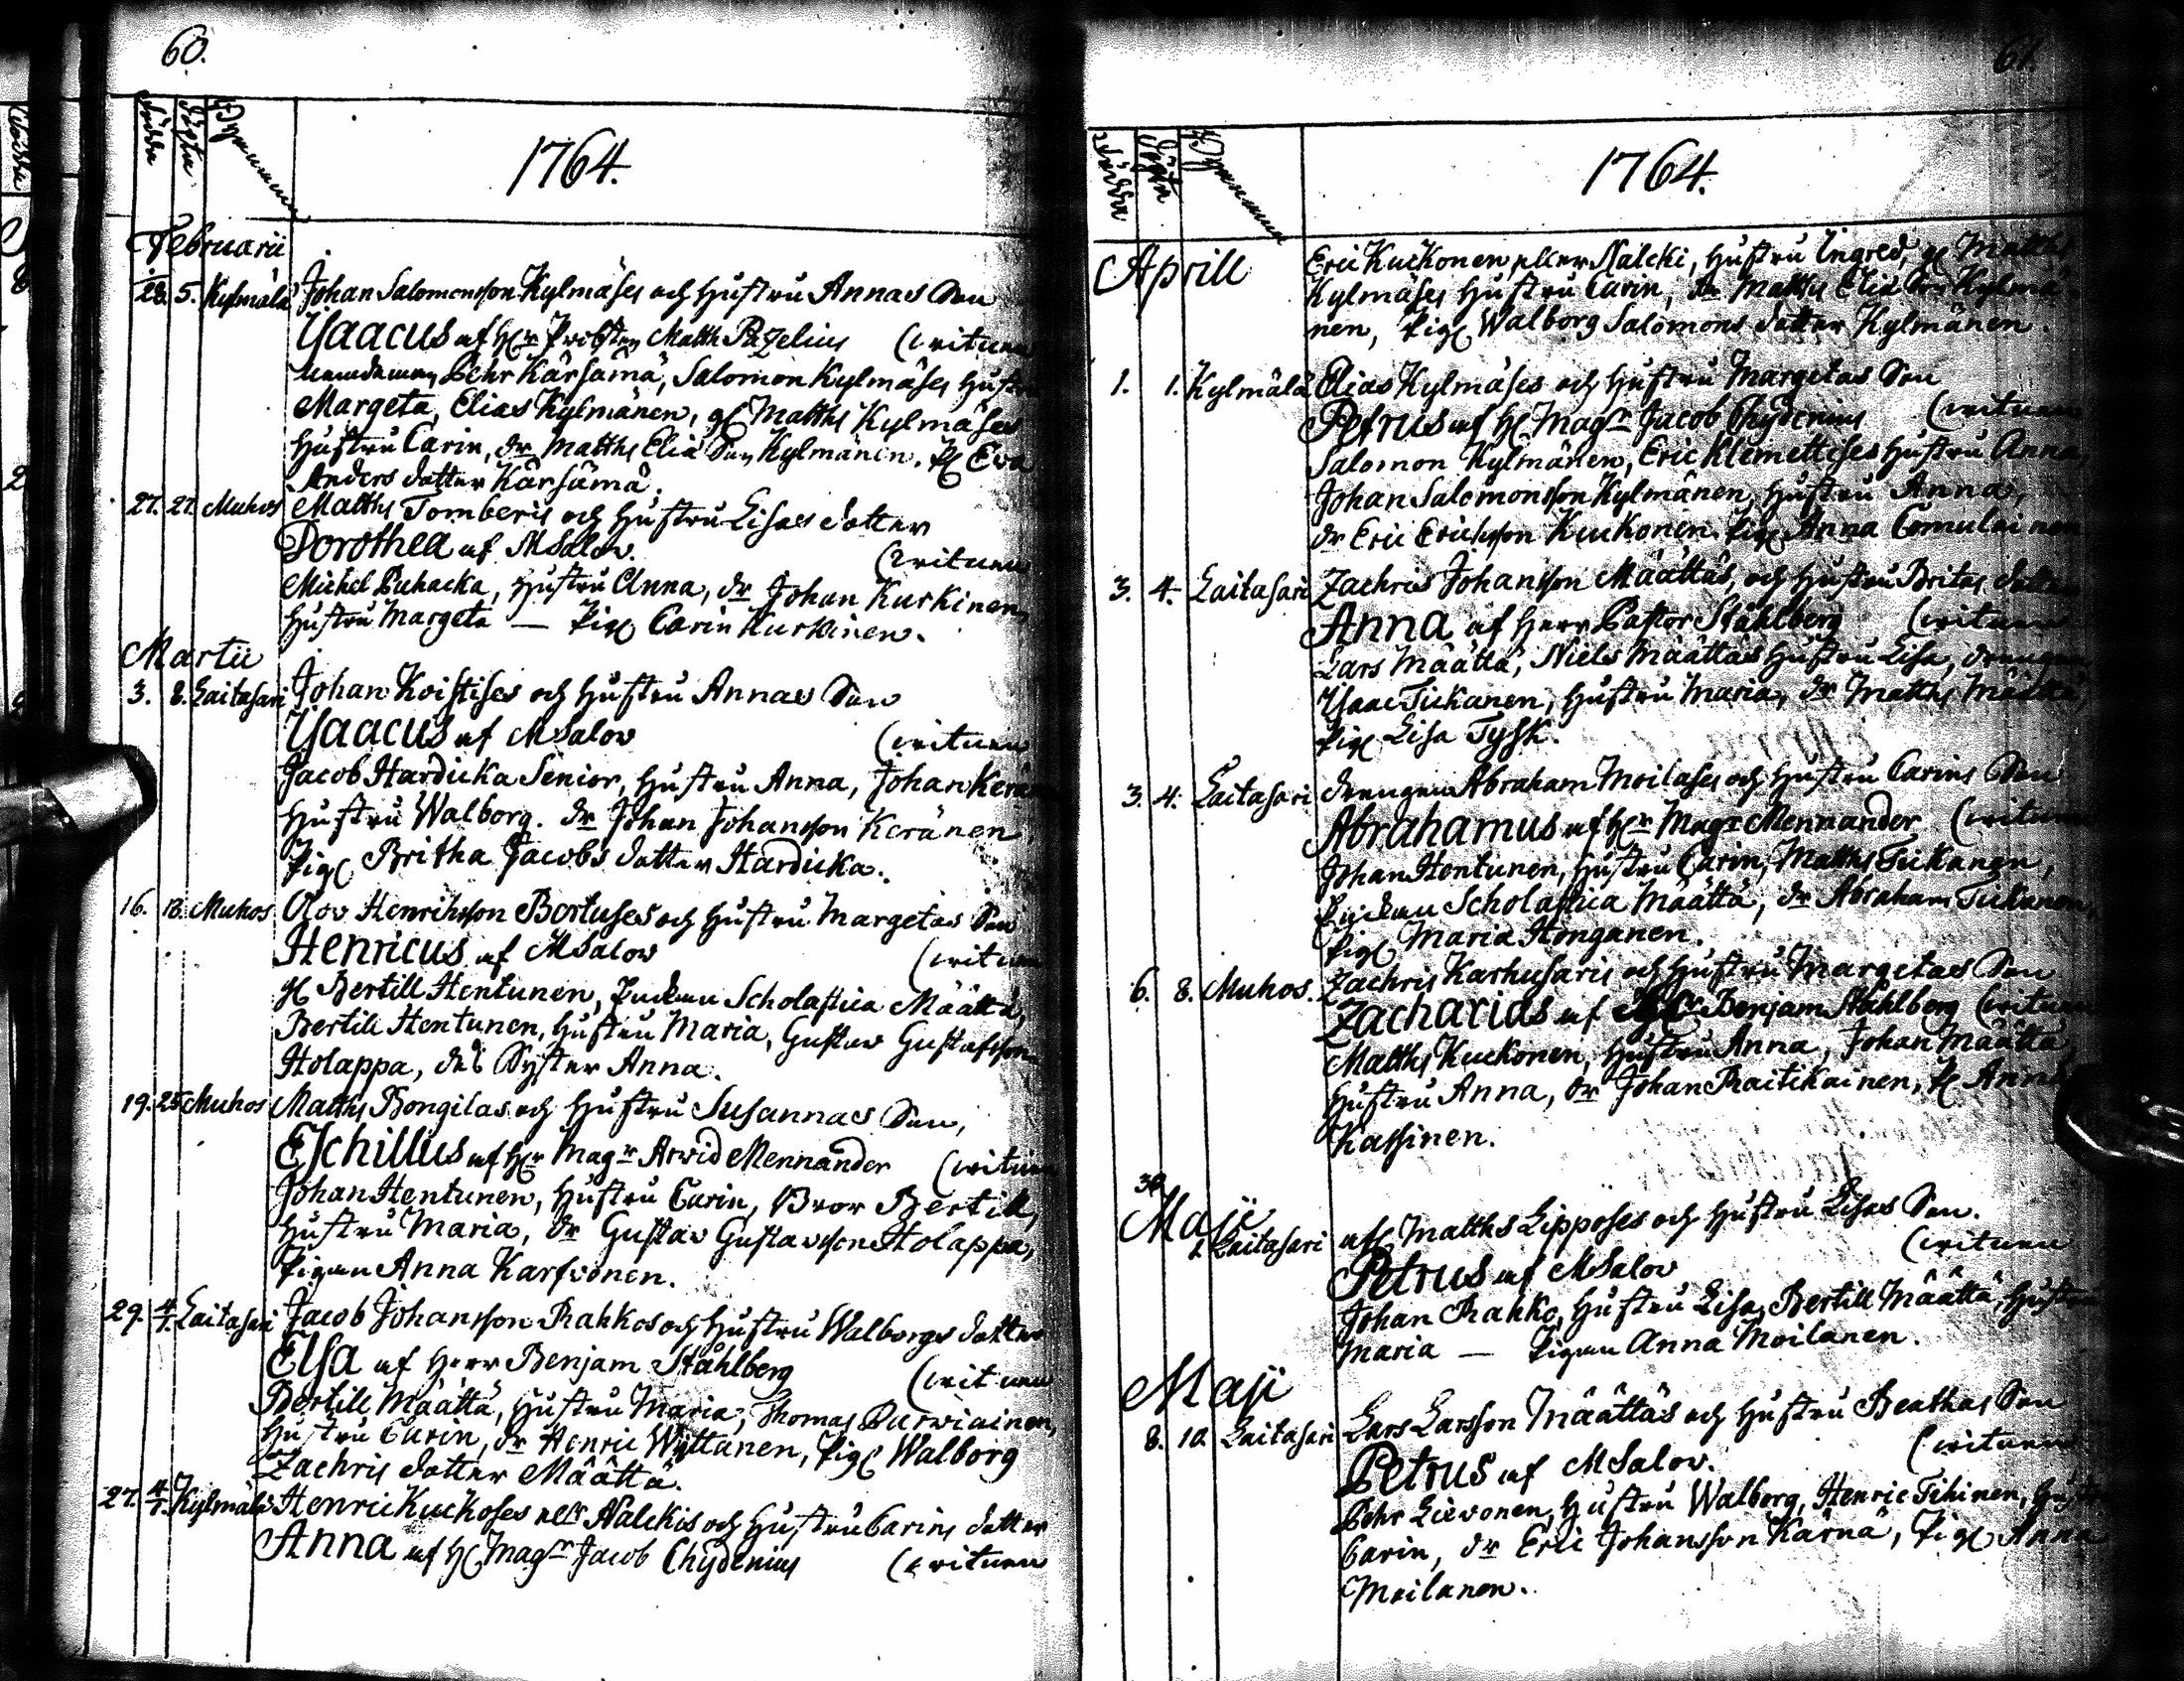 60.
Födde
Döpte
Bynamn
1764.
Februarii
28. 5. Kylmälä Johan Salomonsson Kylmäses och Hustru Annas Son
Isaacus af H:r Probsten Matth Pazelius (vittnen
Nämdeman Pehr Kärsämä, Salomon Kylmäses Hustru
Margeta, Elias Kylmänen, gl Matths Kylmäses
Hustru Carin, dr Matths Eliæ Son Kylmänen. P Eva
Anders dotter Kärsämä.
27. 27. Muhos Matths Tomberis och Hustru Lisas dotter
Dorothea af M Salov. (vittnen
Michel Puhacka, Hustru Anna, dr Johan Kurkinen
Hustru Margeta — Pig Carin Kurkinen.
Martii
3. 8. Laitasari Johan Koistises och Hustru Annas Son
Isaacus af M Salov (vittnen
Jacob Hardicka Senior, Hustru Anna, Johan Keränen
Hustru Walborg. dr Johan Johansson Keränen
Pig Britha Jacobs dotter Hardicka.
16. 18. Muhos Olov Henriksson Bertuses och Hustru Margetas Son
Henricus af M Salov (vittnen
gl Bertill Hentunen, Enckan Scholastica Määttä,
Bertill Hentunen, Hustru Maria, Gustav Gustafsson
Holappa, des Syster Anna.
19. 25 Muhos Matths Bongilas och Hustru Susannas Son,
Eschillus af H:r Mag:r Arvid Mennander (vittnen
Johan Hentunen, Hustru Carin, Bror Bertill,
Hustru Maria, dr Gustav Gustavsson Holappa,
Pigan Anna Karfvonen.
29. 4/1. Laitasari Jacob Johansson Rahkos och Hustru Walborgs dotter
Elsa af Herr Benjam Ståhlberg (vittnen
Bertill Määttä, Hustru Maria, Thomas Parviainen,
Hustru Carin, dr Henric Wyttanen, Pig Walborg
Zachris dotter Määttä.
27. 4/1. Kylmälä Henric Kuckoses ell:r Nalckis och Hustru Carins dotter
Anna af H Mag:r Jacob Chydenius (vittnen
61.
Födde
Döpte
Bynamn
1764.
Aprill
Eric Kuckonen eller Nalcki, Hustru Ingred, gl Matths
Kylmäses Hustru Carin, dr Matths Eliæ Son Kylmä
nen, Pig Walborg Salomons dotter Kylmänen.
1. 1. Kylmälä Elias Kylmäses och Hustru Margetas Son
Petrus af H Mag:r Jacob Chydenius (vittnen
Salomon Kylmänen, Eric Klemettises Hustru Anna,
Johan Salomonsson Kylmänen, Hustru Anna,
dr Eric Ericksson Kuckonen. Pig Anna Comulainen
3. 4. Laitasari Zachris Johansson Määttäs, och Hustru Britas dotter
Anna af Herr Pastor Ståhlberg (vittnen
Lars Määttä, Niels Määttäs Hustru Lisa, drengen
Isaac Tickanen, Hustru Maria, dr Matths Määttä,
Pig Lisa Tysk.
3. 4. Laitasari drengen Abraham Moilases och Hustru Carins Son
Abrahamus af H:r Mag:r Mennander (vittnen
Johan Hentunen, Hustru Carin, Matths Tickanen,
Enckan Scholastica Määttä, dr Abraham Tickanen,
Pig Maria Honganen.
6. 8. Muhos. Zachris Karhusaris och Hustru Margetas Son
Zacharias af Benjam Ståhlberg (vittnen
Matths Kuckonen, Hustru Anna, Johan Määttä
Hustru Anna, dr Johan Raitikainen, P Anna
Kassinen.
30.
Maji
1. Laitasari Matths Lipposes och Hustru Lisas Son.
Petrus af M Salov (vittnen
Johan Rahko, Hustru Lisa, Bertill Määttä, Hustru
Maria — Pigan Anna Moilanen.
Maji
8. 10. Laitasari Lars Larsson Määttäs och Hustru Beathas Son
Petrus af M Salov. (vittnen
Pehr Lievonen, Hustru Walborg, Henric Tihinen, Hustru
Carin, dr Eric Johansson Kärnä, Pig Anna
Moilanen.